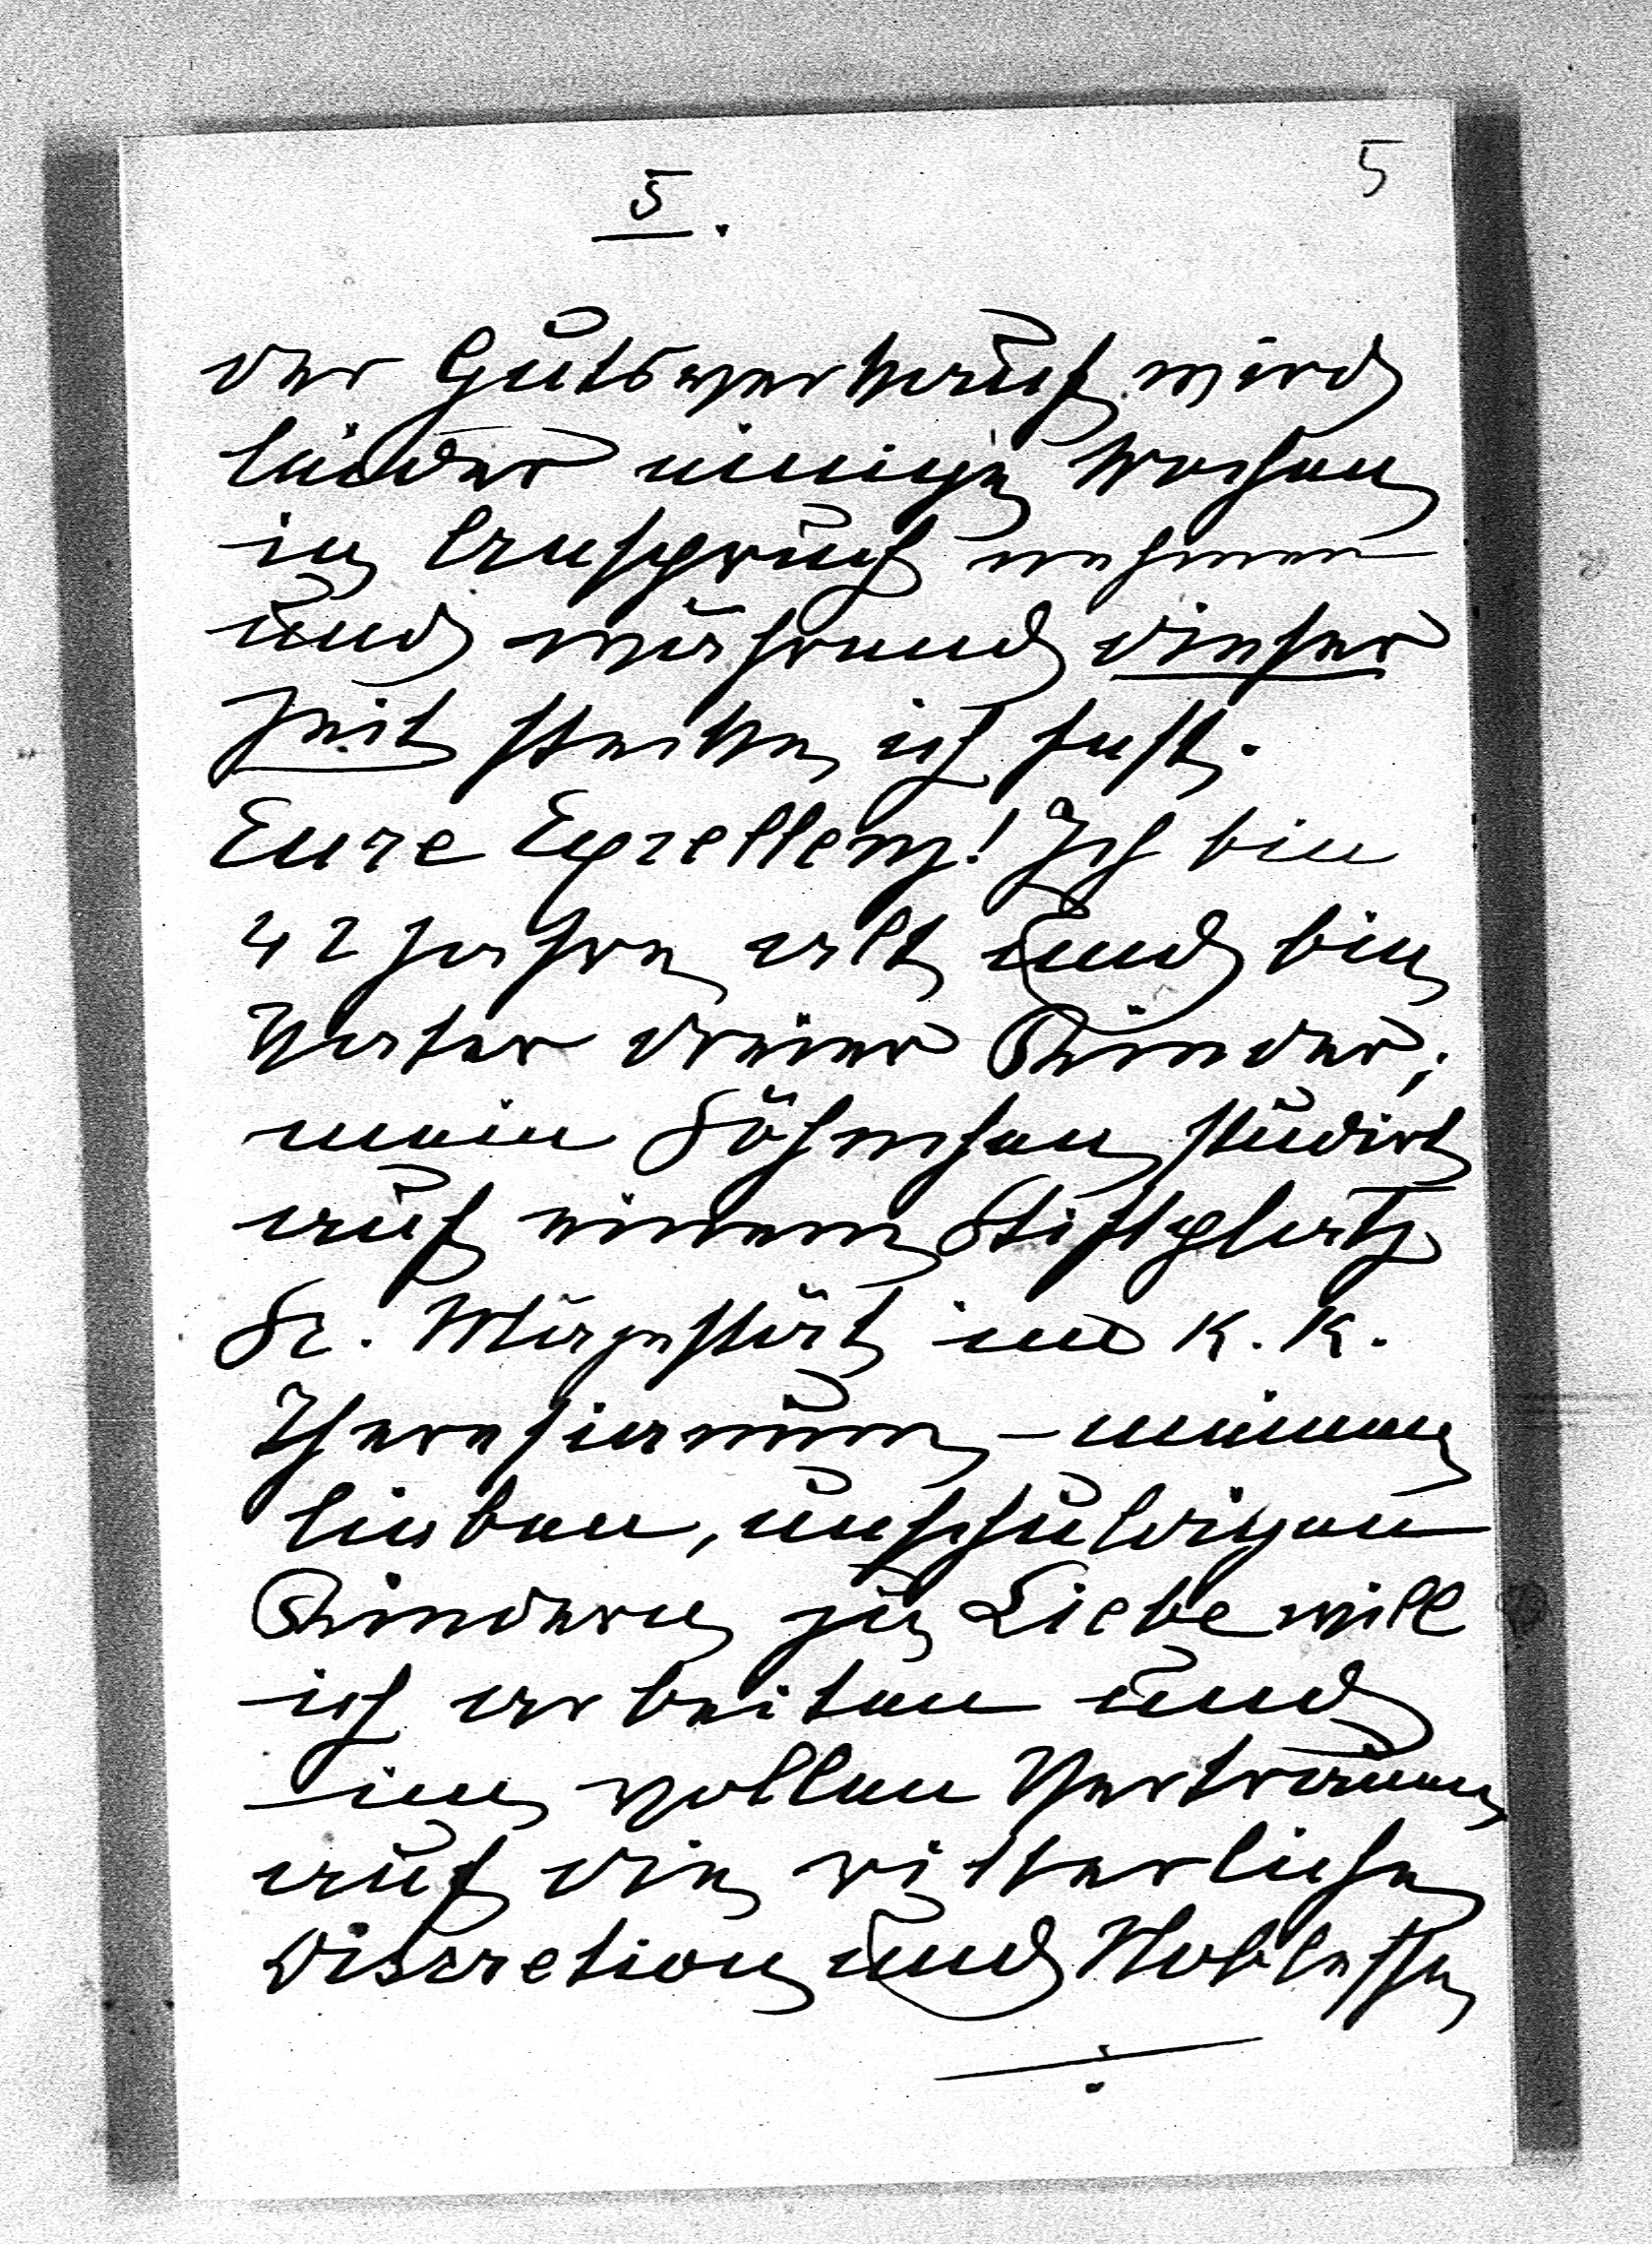 5
5.
der Gutsverkauf wird
leider einige Wochen
in Anspruch nehmen
und während dieser
Zeit stecke ich fest.
Eure Exzellenz! Ich bin
42 Jahre alt und bin
Vater dreier Kinder;
mein Söhnchen studirt
auf einem Stiftplatz
Sr. Majestät im K. K.
Theresianum – meinen
lieben, unschuldigen
Kindern zu Liebe will
ich arbeiten und
im vollen Vertrauen
auf die ritterliche
Discretion und Noblesse